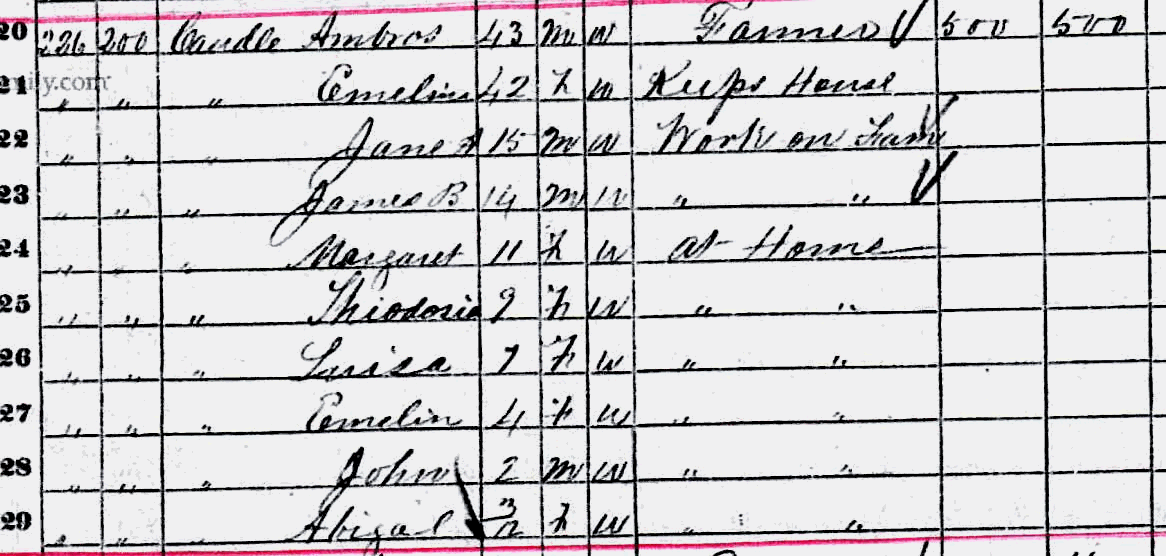 20 226 200 Caudle Ambros 43 m w Farmer √ 500 500
21 " " " Emelin 42 f w Keeps House
22 " " " Jane A 15 m w Work on Farm √
23 " " " James B 14 m w " " √
24 " " " Margaret 11 f w at Home
25 " " " Thiodosia 9 f w " "
26 " " " Luisa 7 f w " "
27 " " " Emelin 4 f w " "
28 " " " John 2 m w " "
29 " " " Abigal 3/12 f w " "
mily.com